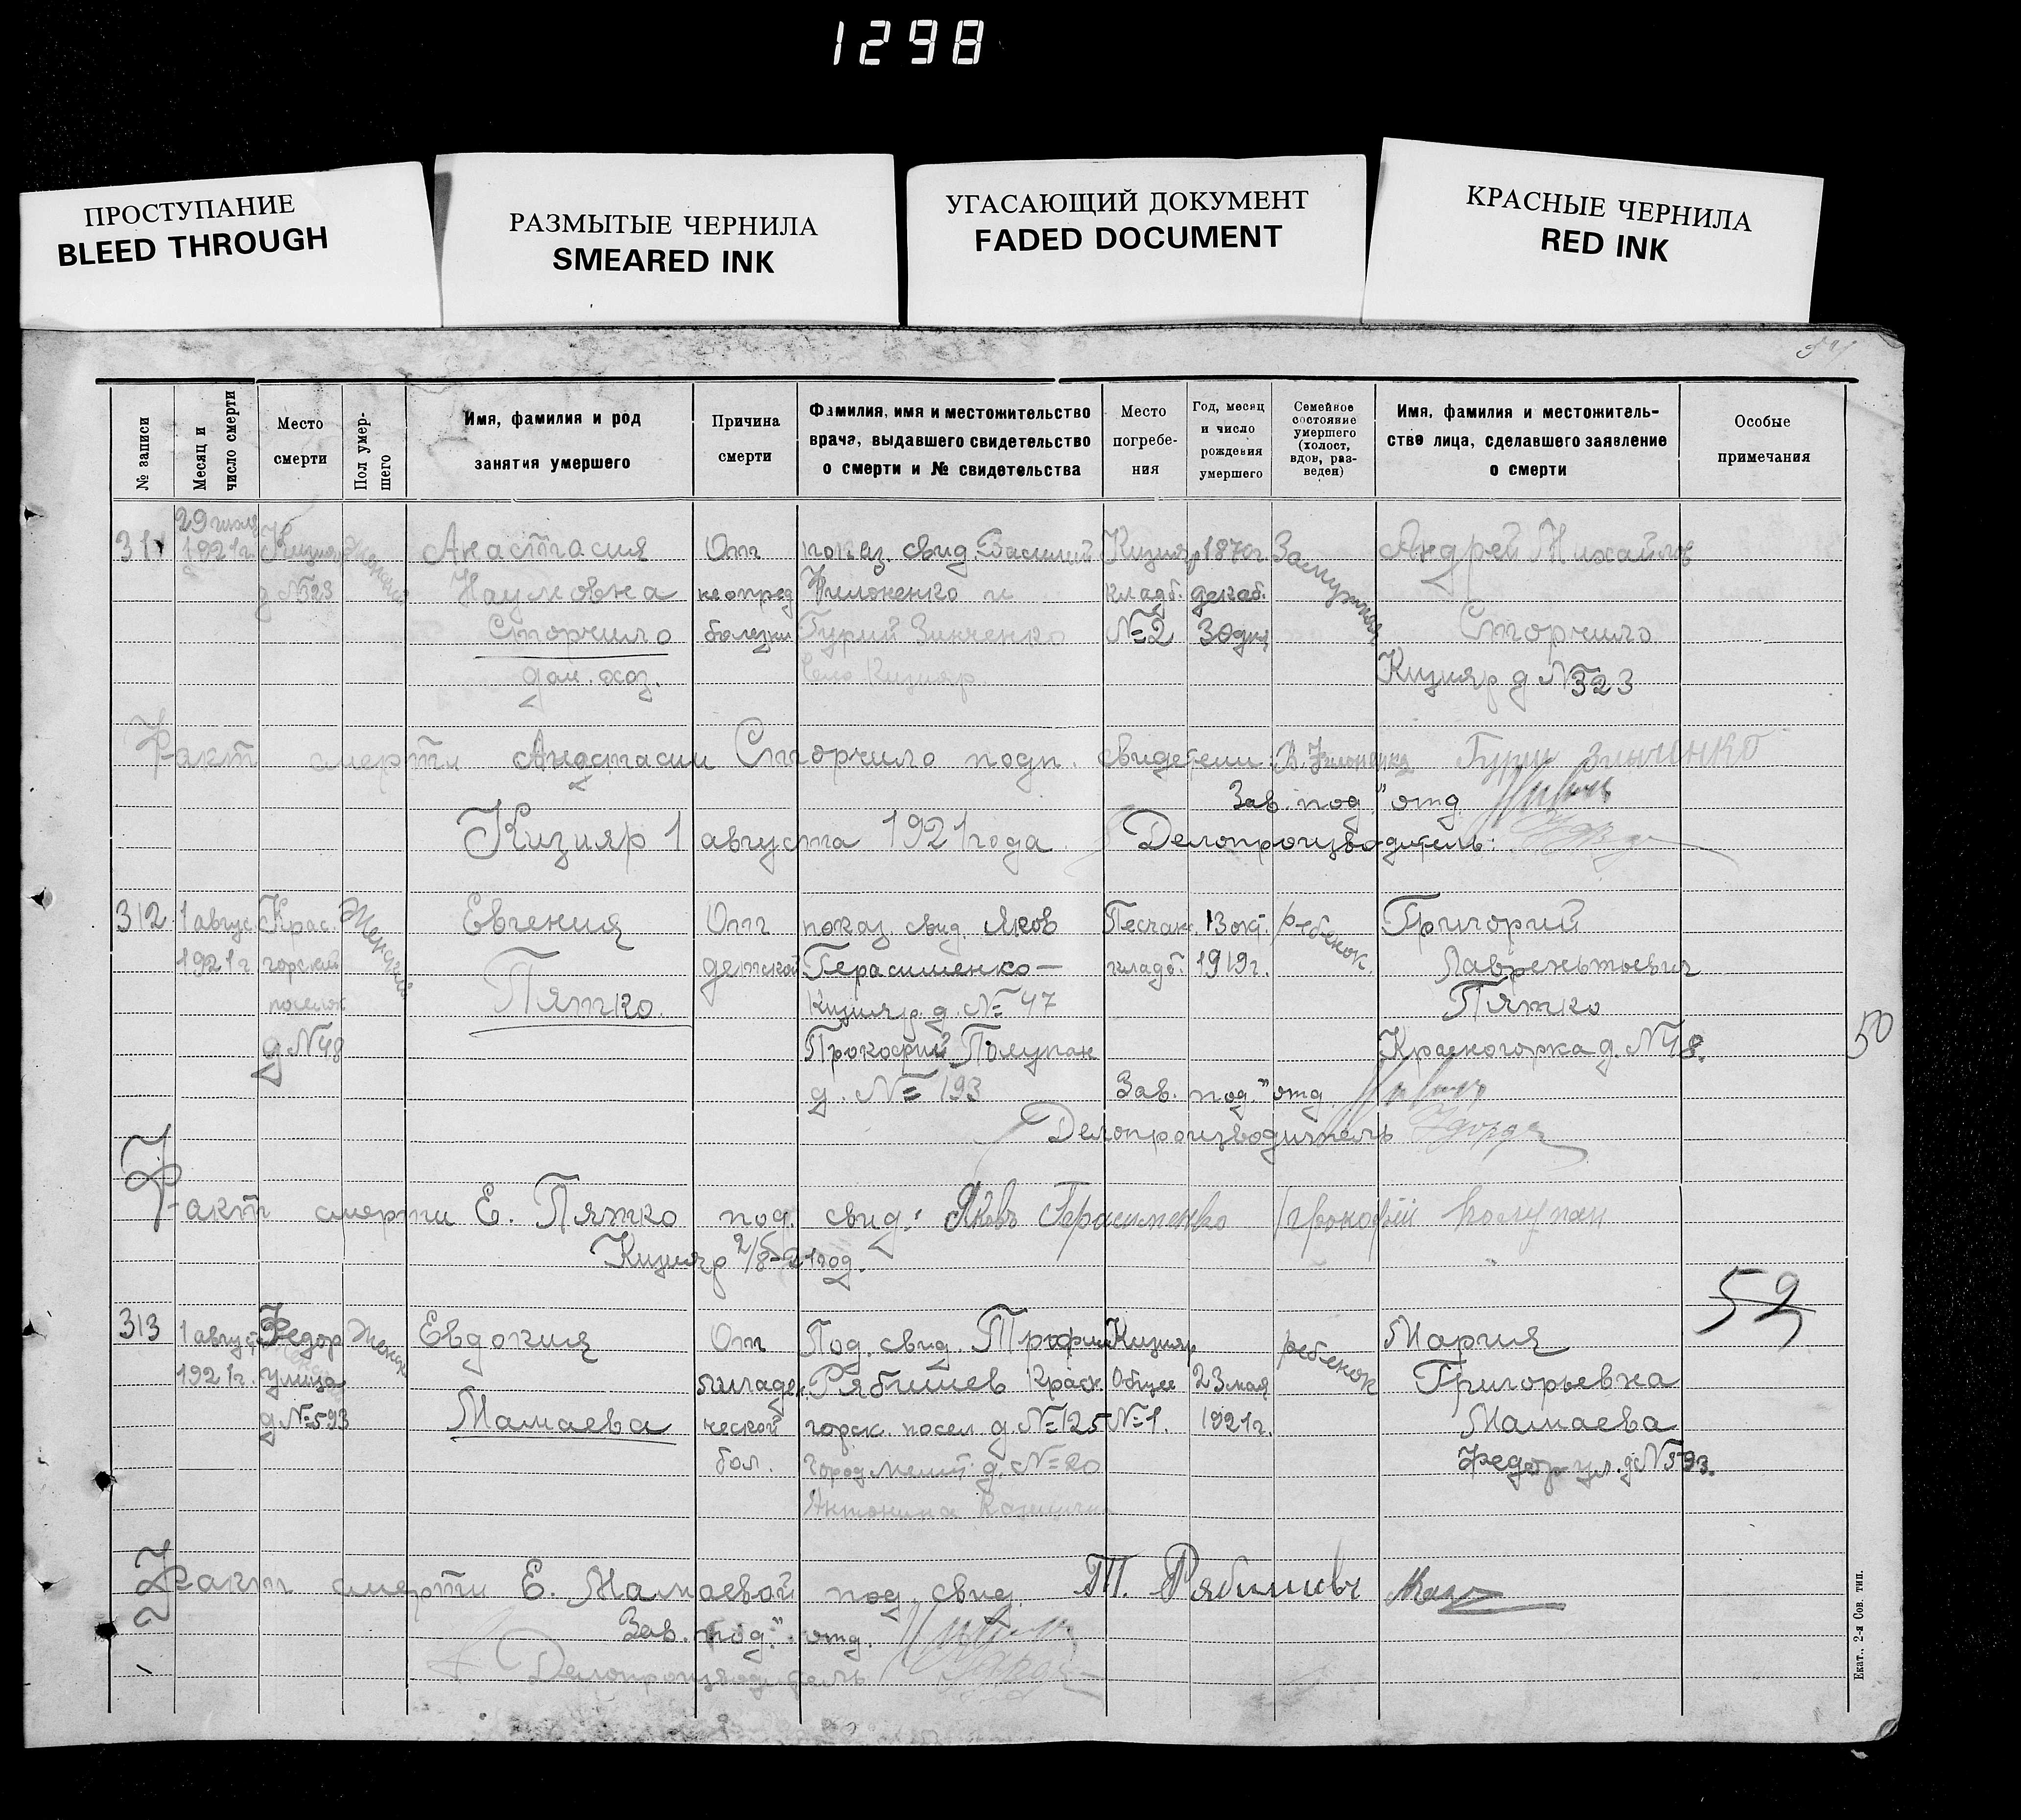 1298
ПРОСТУПАНИЕ
BLEED THROUGH
РАЗМЫТЫЕ ЧЕРНИЛА
SMEARED INK
УГАСАЮЩИЙ ДОКУМЕНТ
FADED DOCUMENT
КРАСНЫЕ ЧЕРНИЛА
RED INK
№ записи
Месяц и число смерти
Место смерти
Пол умер-
шего
Имя, фамилия и род
занятия умершего
Причина
смерти
Фамилия, имя и местожительство
врача, выдавшего свидетельство
о смерти и № свидетельства
Место
погребе-
ния
Год, месяц
и число
рождения
умершего
Семейное
состояние
умершего
(холост,
вдов, раз-
веден)
Имя, фамилия и местожитель-
ство лица, сделавшего заявление
о смерти
Особые
примечания
311
29 июля
1921г.
Кизияр
д №323
Женский
Анастасия
Наумовна
Сторчило
дом. хоз.
От
неопред
болезни
показ. свид. Василий
Филоненко и
Гурий Зинченко
село Кизияр
Кизияр
кладб.
№2
1870г
декаб.
30дня
Замужняя
Андрей Михайлов
Сторчило
Кизияр д №323
Факт смерти Анастасии Сторчило подп. свидетели: В. Филоненко Гури Зинченко
Зав. под." отд
Кизияр 1 августа 1921года. Делопроизводитель:
312
1 авгус.
1921г
Крас.
горский
поселок
д №48
Женский
Евгения
Пятко.
От
детской
показ. свид. Яков
Герасименко —
Кизияр. д. № 47
Прокофий Полупан
д. № 193
Песчан.
кладб.
13 окт.
1919г.
ребенок.
Григорий
Лаврентьевич
Пятко
Красногорка д. №48.
50
Зав. под." отд
Делопроизводитель
Факт смерти Е. Пятко под. свид: Яковъ Герасименко Прокофий Полупан
Кизияр 2/8-21год.
59
313
1 август
1921г.
Федор
улица
д №593
Женск
Евдокия
Мамаева
От
младен
ческой
бол.
Под. свид. Трофим
Рябишев Красн
горск. посел д №125
город Мелит. д. №20
Антонина
Кизияр
Общее
№1.
23 мая
1921г.
ребенок
Мария
Григорьевна
Мамаева
Федор ул. д №593.
Факт смерти Е. Мамаевой под. свид. Т. Рябишевъ
Зав. под." отд.
Делопроизводитель
Екат., 2-я Сов. тип.